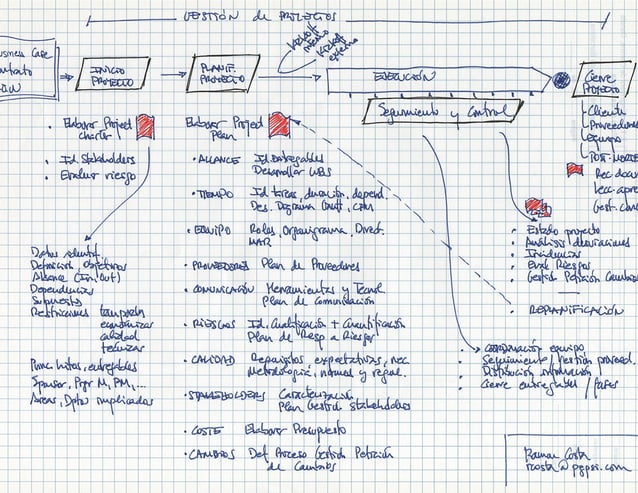 GESTIÓN de PROYECTOS
Business Case
Contrato
SOW
INICIO
PROYECTO
PLANIF.
PROYECTO
Kickoff
interno
Kickoff
externo
EJECUCIÓN
Seguimiento y Control
Cierre
PROYECTO
Cliente
Proveedores
equipo
POST-MORTEM
Rec docu
Lecc apre
Gest. Con
• Elaborar Project
Charter
• Id. Stakeholders
• Evaluar riesgo
Datos identif.
Definición Objetivos
Alcance (In/Out)
Dependencias
Supuestos
Restricciones temporales
económicas
calidad
técnicas
Princ. hitos, entregables
Sponsor, Prgr M, PM, ...
Áreas, Dptos implicados
Elaborar Project
Plan
• ALCANCE Id. Entregables
Desarrollar WBS
• TIEMPO Id tareas, duración, depend.
Des. Diagrama Gantt, CPM
• EQUIPO Roles, Organigrama, Direct.
MAR
• PROVEEDORES Plan de Proveedores
• COMUNICACIÓN Herramientas y Tecnol.
Plan de Comunicación
• RIESGOS Id. Cualificación + Cuantificación
Plan de Resp a Riesgos
• CALIDAD Requisitos, expectativas, nec.
Metodología, normas y regul.
• STAKEHOLDERS Caracterización
Plan Gestión Stakeholders
• COSTE Elaborar Presupuesto
• CAMBIOS Def Proceso Gestión Petición
de Cambios
• Estado proyecto
• Análisis desviaciones
• Incidencias
• Eval Riesgos
• Gestión Petición Cambios
• REPLANIFICACIÓN
• COORDINACIÓN equipo
• Seguimiento / Gestión proveed.
• Distribución información
• Cierre entregables / fases
Ramon Costa
rcosta@pgpsi.com